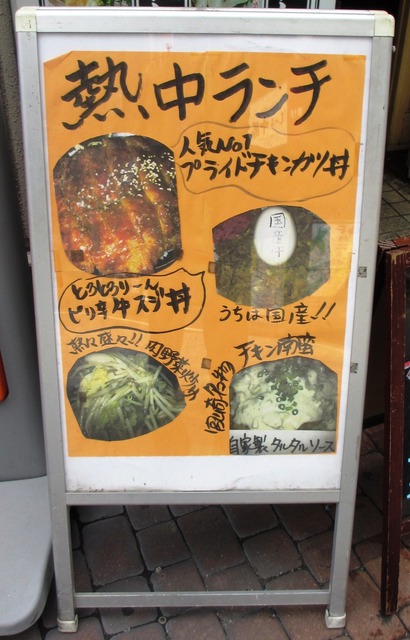 熱、中ランチ
人気No1
プライドチキンカツ丼
国産牛
とろとろりーん
ピリ辛牛スジ丼
うちは国産!!
熱々盛々!!肉野菜炒め
宮崎名物
チキン南蛮
自家製タルタルソース